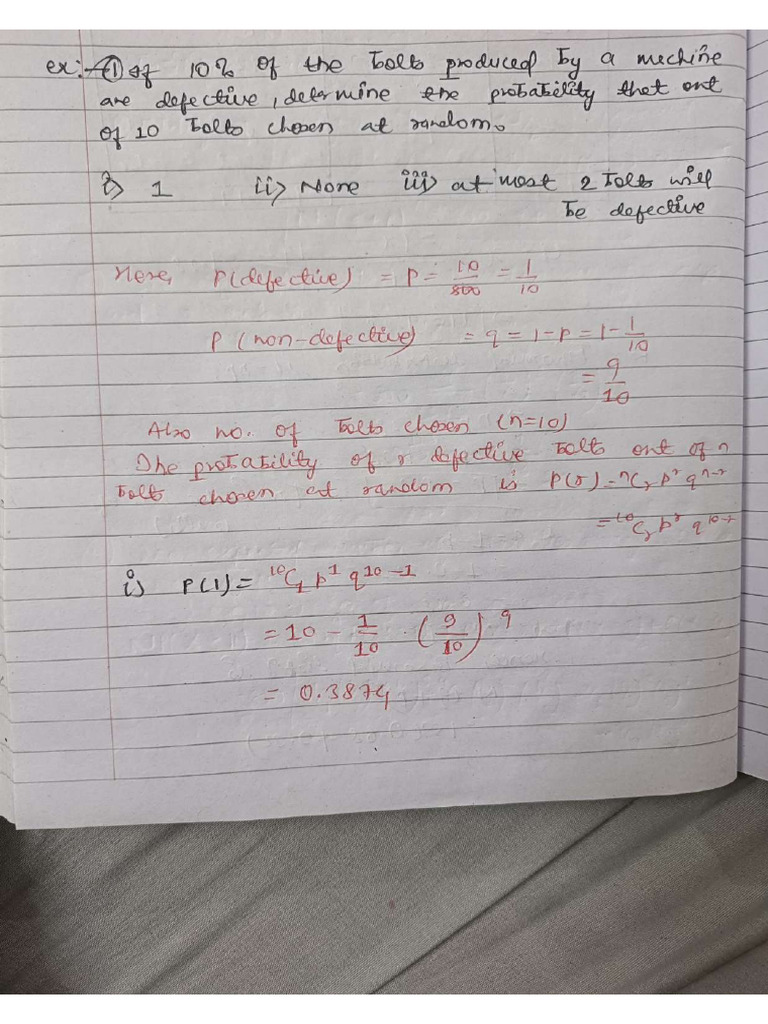 ex:- ① If 10% of the bolts produced by a mechine
are defective, determine the probability that out
of 10 bolts chosen at random.
i) 1 ii) None iii) at most 2 bolts will
be defective
Here, P(defective) = P = 10/100 = 1/10
P (non-defective) = q = 1-P = 1- 1/10
= 9/10
Also no. of bolts chosen (n=10)
The probability of r defective bolts out of n
bolts chosen at random is P(r) = ⁿCᵣ pʳ qⁿ⁻ʳ
= ¹⁰Cᵣ pʳ q¹⁰⁻ʳ
i) P(1) = ¹⁰C₁ p¹ q¹⁰⁻¹
= 10 - 1/10 . (9/10).⁹
= 0.3874